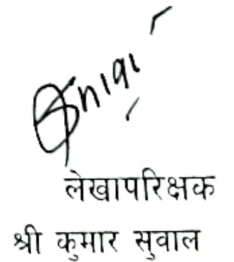 लेखापरिक्षक
श्री कुमार सुवाल